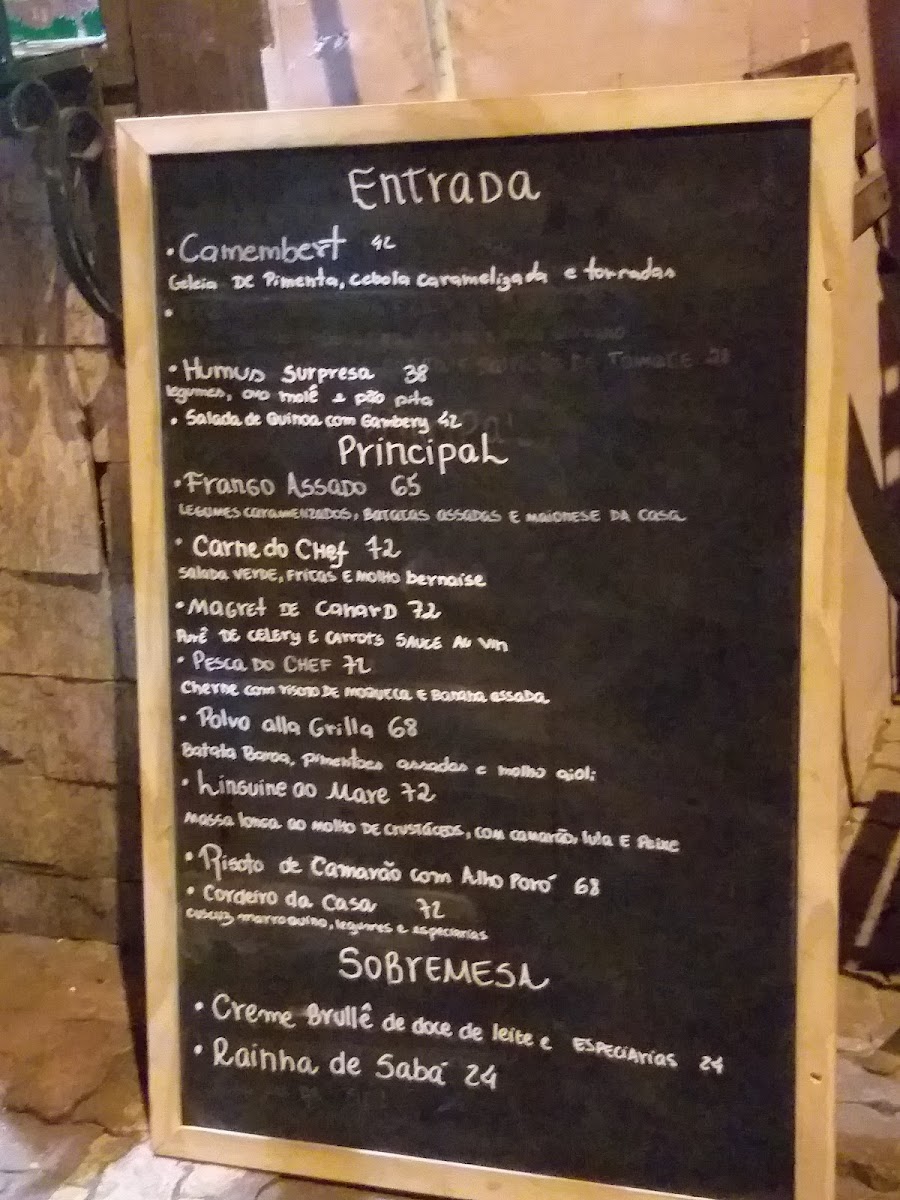 Entrada
• Camembert 42
Geleia DE Pimenta, cebola caramelizada e torradas
•
DE TOMATE 38
• Humus Surpresa 38
legumes, ovo molê e pão pita
• Salada de Quinoa com Gambery 42
Principal
• Frango Assado 65
LEGUMES caramelizados, Batatas assadas E maionese DA casa
• Carne do Chef 72
Salada VERDE, FRITAS E MOLHO bernaise
• MAGRET DE CANARD 72
Purê DE CELERY E CARROTS SAUCE AU Vin
• PESCA DO CHEF 72
Cherne com risoto DE MOQUECA E Banana assada
• Polvo alla Grilla 68
Batata Baroa, pimentões assadas e molho aioli
• Linguine ao Mare 72
Massa longa ao molho DE CRUSTÁCEOS, com camarão, lula E Peixe
• Risoto de Camarão com Alho Poró 68
• Cordeiro da Casa 72
cuscuz marroquino, legumes e especiarias
SOBREMESA
• Creme Brullê de doce de leite e ESPECIArias 24
• Rainha de Sabá 24